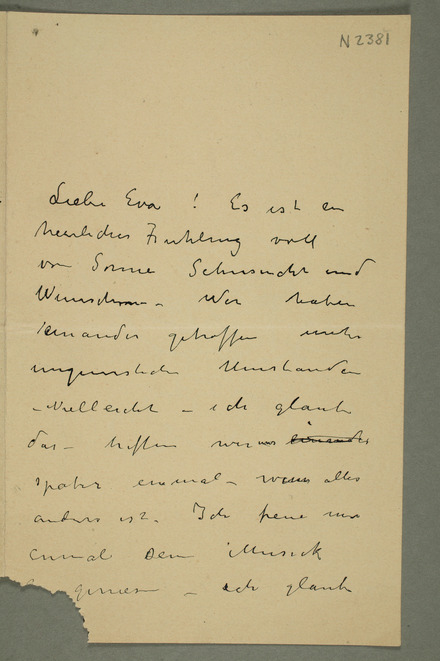 N2381
Liebe Eva ! Es ist ein
herrliches Fruhling voll
von Sonne Sehnsucht und
Wunschen - Wir haben
einander getroffen unter
ungunstichen Umstanden
- Vielleicht - ich glaube
das - treffen wir uns einander
spater einmal - wenn alles
anders ist. Ich freue mich
einmal Deine Musick
geniesen - ich glaube